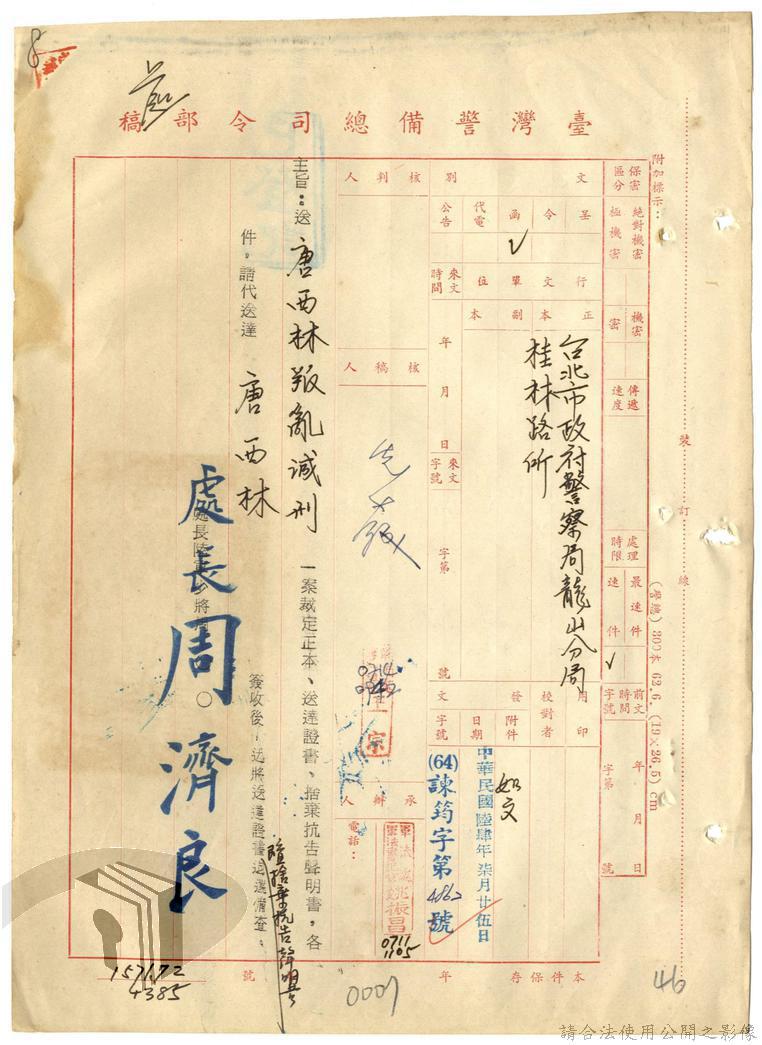 8
臺灣警備總司令部稿
附加標示：
保密區分
絕對機密
極機密
機密
密
傳遞速度
處理時限
最速件
速件
ˇ
前文時間字號
年 月 日
字第 號
裝訂線
(聯總) 300本 63.6. (19×26.5) cm
文別
呈
令
函
代電
公告
ˇ
行文單位
正本
副本
台北市政府警察局龍山分局
桂林路所
來文時間
年 月 日
來文字號
字第 號
發文
用印
校對者
附件
如文
日期
中華民國陸肆年柒月廿伍日
字號
(64)諫筠字第4862號
核判人
核稿人
承辦人
電話：
軍法處
姚振昌
0711
1105
0714
主旨：送 唐西林叛亂減刑 一案裁定正本、送達證書、捨棄抗告聲明書，各
件，請代送達 唐西林 簽收後，迅將送達證書退還備查。
暨捨棄抗告聲明書
處長周濟良
本件保存 年 號
0007
1571.72
4385
46
請合法使用公開之影像